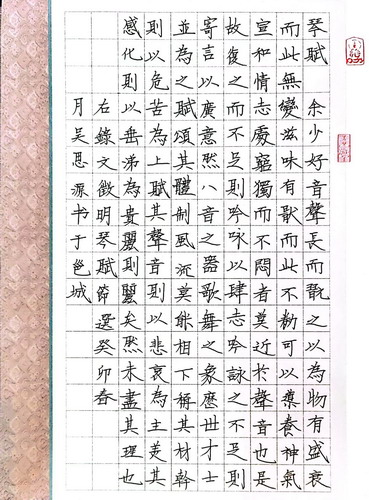 琴賦 余少好音聲長而翫之以為物有盛衰
而此無變滋味有猒而此不勌可以養神氣
宣和情志處窮獨而不悶者莫近於聲音也是
故復之而不足則吟咏以肆志吟詠之不足則
寄言以廣意然八音之器歌舞之象歷世才士
並為之賦頌其體制風流莫能相下稱其材幹
則以危苦為上賦其聲音則以悲哀為主美其
感化則以垂涕為貴麗則麗矣然未盡其理也
右錄文徵明琴賦節選癸卯春
月吴源书于邕城